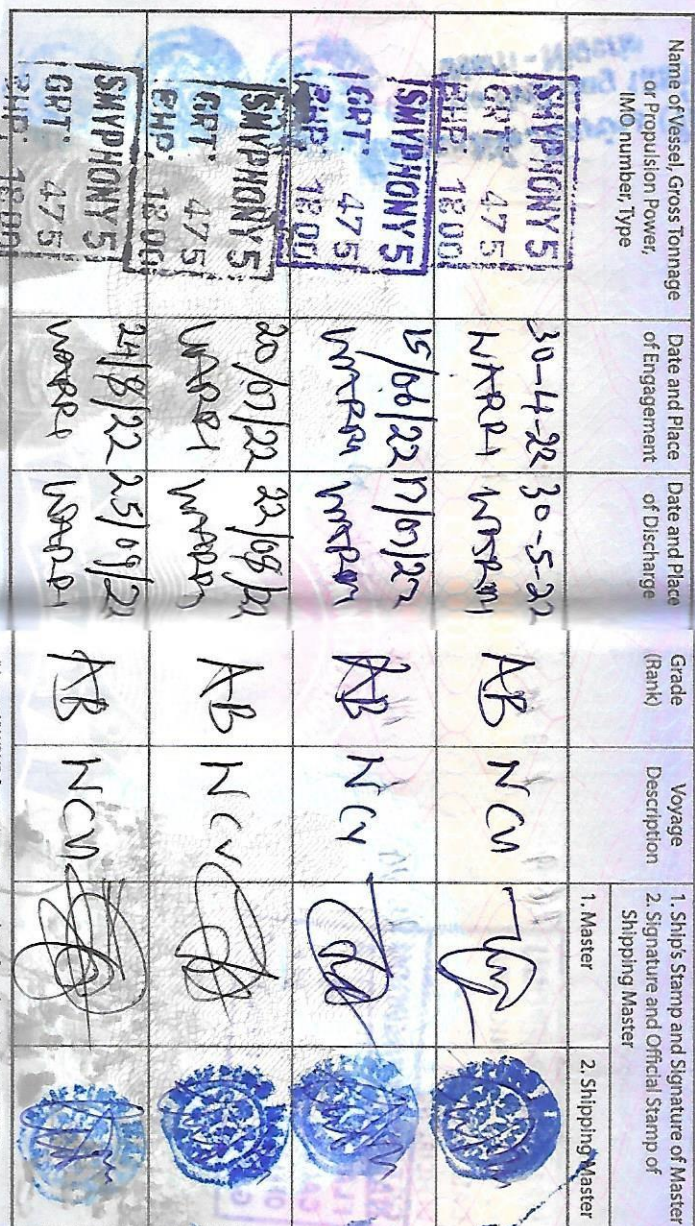 Name of Vessel, Gross Tonnage
or Propulsion Power,
IMO number, Type
Date and Place
of Engagement
Date and Place
of Discharge
Grade
(Rank)
Voyage
Description
1. Ship's Stamp and Signature of Master
2. Signature and Official Stamp of
Shipping Master
1. Master
2. Shipping Master
SMYPHONY 5
GRT: 475
BHP: 1800
30-4-22
WARRI
30-5-22
WARRI
AB
NCV
SMYPHONY 5
GRT: 475
BHP: 1800
15/06/22
WARRI
17/07/22
WARRI
AB
NCV
SMYPHONY 5
GRT: 475
BHP: 1800
20/07/22
WARRI
22/08/22
WARRI
AB
NCV
SMYPHONY 5
GRT: 475
BHP: 1800
24/8/22
WARRI
25/09/22
WARRI
AB
NCV